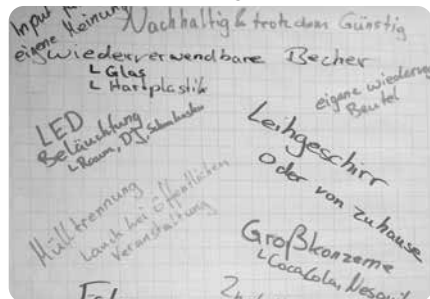 Input
eigene Meinung
Nachhaltig & trotzdem Günstig
wiederverwendbare Becher
L Glas
L Hartplastik
eigene
Beutel
LED
Beläuchtung
L Raum, DJ,
Leihgeschirr
oder von zuhause
Mülltrennung
bei öffentlichen
Veranstaltung
Großkonzerne
L CocaCola,